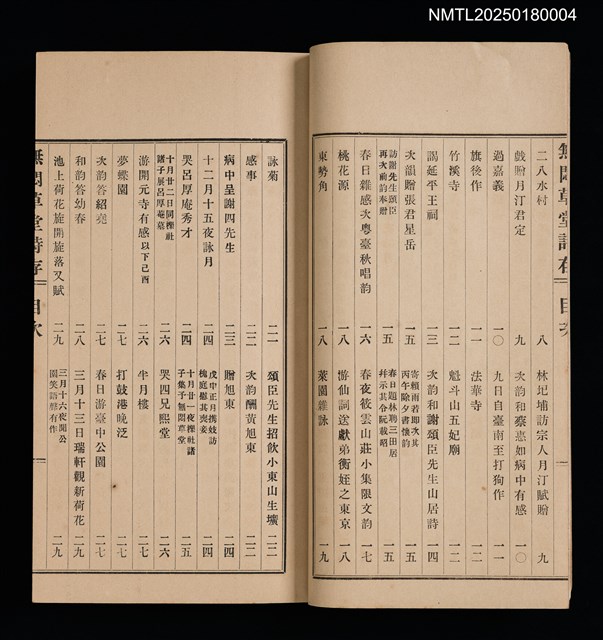 NMTL20250180004
無悶草堂詩存 目次
二八水村 八 林圮埔訪宗人月汀賦贈 九
戲贈月汀君定 九 次韵和蔡惠如病中有感 一〇
過嘉義 一〇 九日自臺南至打狗作 一一
旗後作 一一 法華寺 一二
竹溪寺 一二 魁斗山五妃廟 一二
謁延平王祠 一三 次韵和謝頌臣先生山居詩 一四
次韻贈張君星岳 一五 寄賴雨若即次其丙午除夕書懷韵 一五
訪謝先生頌臣再次前韵奉贈 一五 春日題林聘三田居并示其令阮載昭 一五
春日雜感次粵臺秋唱韵 一六 春夜筱雲山莊小集限文韵 一七
桃花源 一八 游仙詞送獻弟衡姪之東京 一八
東勢角 一八 萊園雜詠 一九
詠菊 二一 頌臣先生招飲小東山生壙 二二
感事 二二 次韵酬黃旭東 二二
病中呈謝四先生 二三 贈旭東 二四
十二月十五夜詠月 二四 戊申正月携妓訪槐庭慰其喪妾 二四
哭呂厚庵秀才 二四 十月廿一夜櫟社諸子集予無悶草堂 二五
十月廿二日同櫟社諸子展呂厚菴墓 二六 哭四兄熙堂 二六
游開元寺有感以下己酉 二六 半月樓 二七
夢蝶園 二七 打鼓港晚泛 二七
次韵答紹堯 二七 春日游臺中公園 二七
和韵答幼春 二八 三月十三日瑞軒觀新荷花 二九
池上荷花旋開旋落又賦 二九 三月十六夜開公園笑語戲有作 二九
無悶草堂詩存 目次